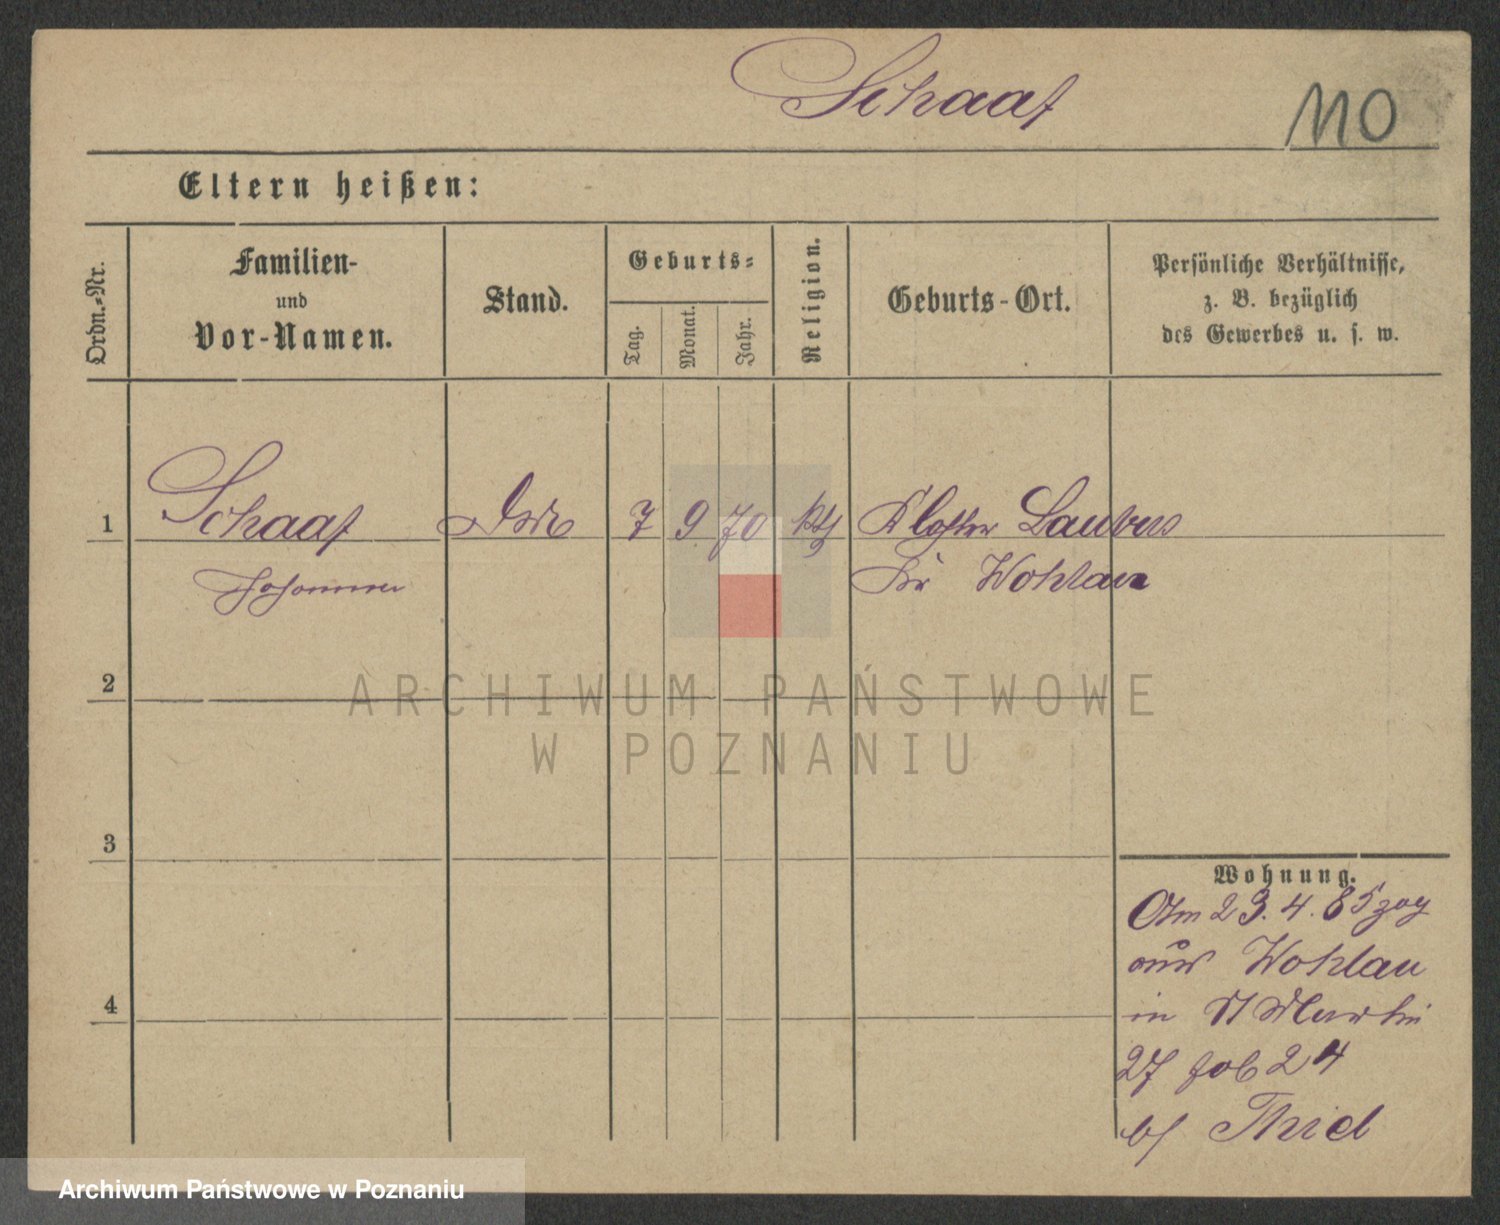 Schaaf
110
Eltern heißen:
Ordn.-Nr.
Familien-
und
Vor-Namen.
Stand.
Geburts-
Tag.
Monat.
Jahr.
Religion.
Geburts-Ort.
Persönliche Verhältnisse,
z. B. bezüglich
des Gewerbes u. s. w.
1
Schaaf
7 9 70
Kloster Leubus
Johanna
Kr Wohlau
ARCHIWUM PAŃSTWOWE
W POZNANIU
2
3
4
Wohnung.
Am 23.4.85 zog
aus Wohlau
in St Martin
27
24
bei Thiel
Archiwum Państwowe w Poznaniu